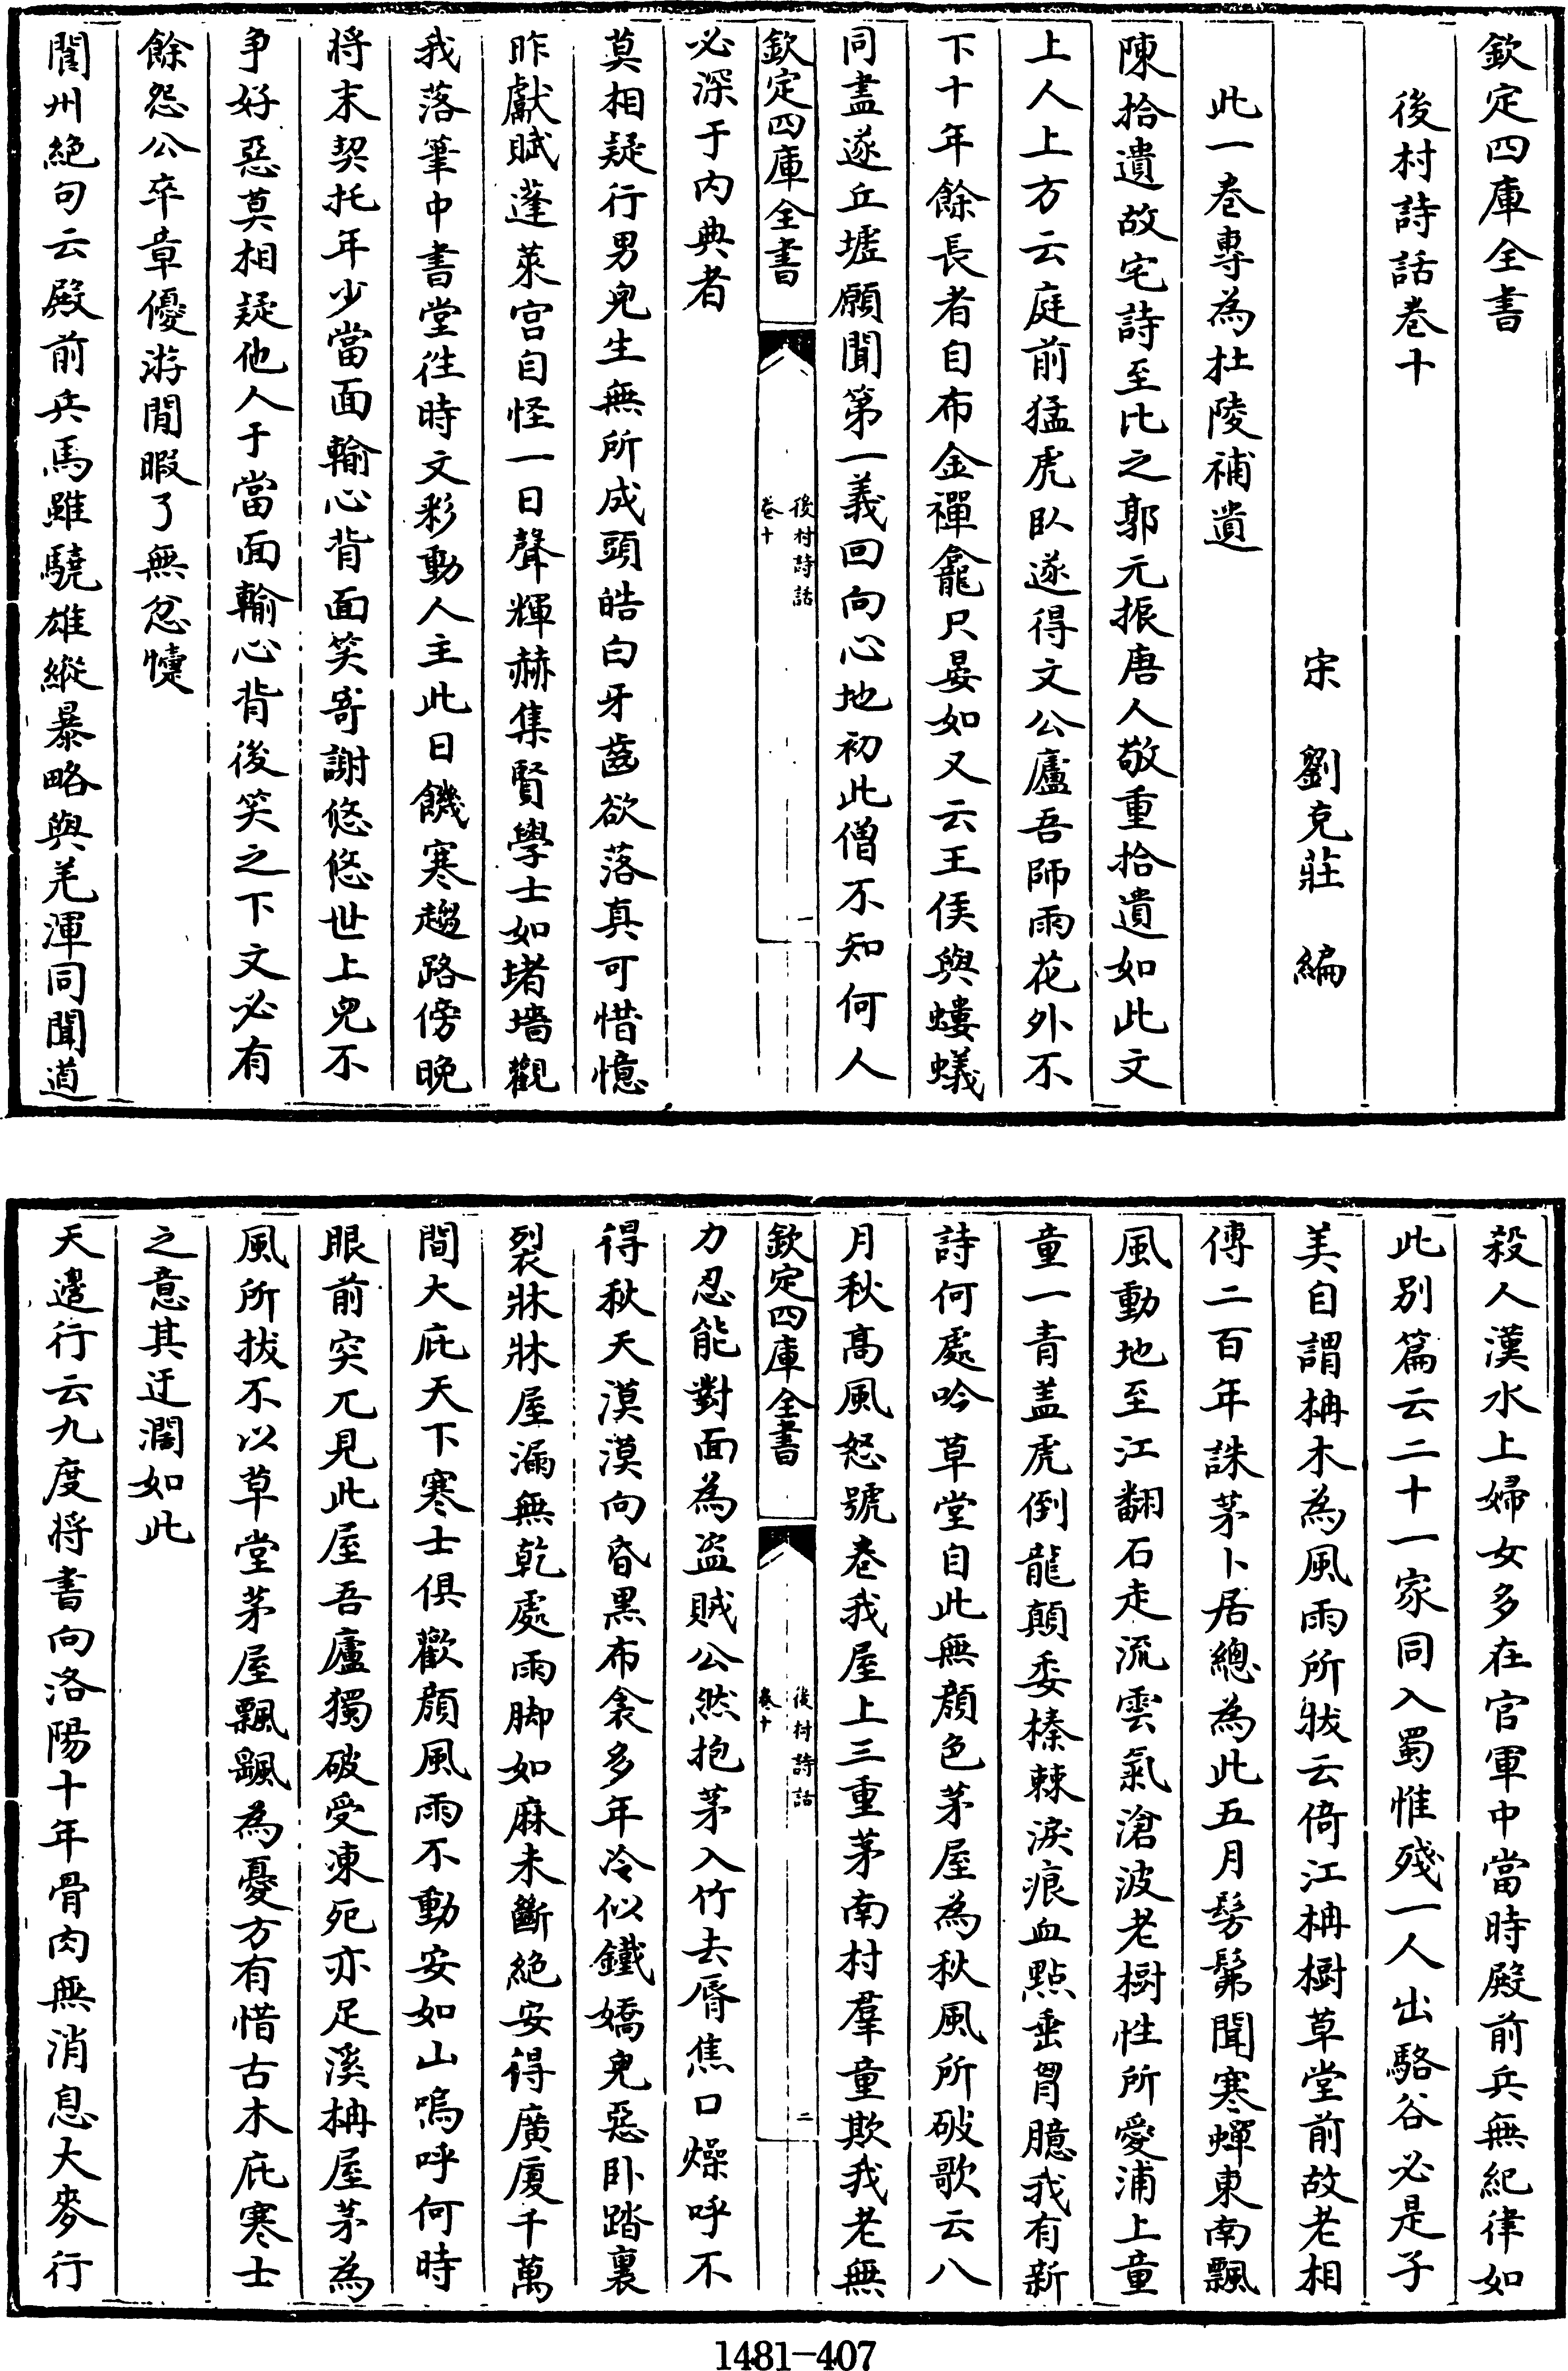 欽定四庫全書
後村詩話卷十
宋　劉克莊　編
此一卷專為杜陵補遺
陳拾遺故宅詩至比之郭元振唐人敬重拾遺如此文
上人上方云庭前猛虎臥遂得文公廬吾師雨花外不
下十年餘長者自布金禪龕只晏如又云王侯與螻蟻
同盡遂丘墟願聞第一義回向心地初此僧不知何人
欽定四庫全書
後村詩話
卷十
一
必深于内典者
莫相疑行男兒生無所成頭皓白牙齒欲落真可惜憶
昨獻賦蓬萊宫自怪一日聲輝赫集賢學士如堵墻觀
我落筆中書堂往時文彩動人主此日饑寒趨路傍晩
將末契托年少當面輸心背面笑寄謝悠悠世上兒不
争好惡莫相疑他人于當面輸心背後笑之下文必有
餘怨公卒章優游閒暇了無忿懥
閬州絶句云殿前兵馬雖驍雄縱暴略與羌渾同聞道
殺人漢水上婦女多在官軍中當時殿前兵無紀律如
此别篇云二十一家同入蜀惟殘一人出駱谷必是子
美自謂柟木為風雨所㧞云倚江柟樹草堂前故老相
傳二百年誅茅卜居總為此五月髣髴聞寒蟬東南飄
風動地至江翻石走流雲氣滄波老樹性所愛浦上童
童一青盖虎倒龍顛委榛棘淚痕血點垂胃臆我有新
詩何處吟草堂自此無顔色茅屋為秋風所破歌云八
月秋髙風怒號卷我屋上三重茅南村羣童欺我老無
欽定四庫全書
後村詩話
卷十
二
力忍能對面為盗賊公然抱茅入竹去脣焦口燥呼不
得秋天漠漠向昏黒布衾多年冷似鐵嬌兒惡卧踏裏
裂牀牀屋漏無乾處雨脚如麻未斷絶安得廣厦千萬
間大庇天下寒士俱歡顔風雨不動安如山嗚呼何時
眼前突兀見此屋吾廬獨破受凍死亦足溪柟屋茅為
風所拔不以草堂茅屋飄飄為憂方有惜古木庇寒士
之意其迂濶如此
天邊行云九度將書向洛陽十年骨肉無消息大麥行
1481-407